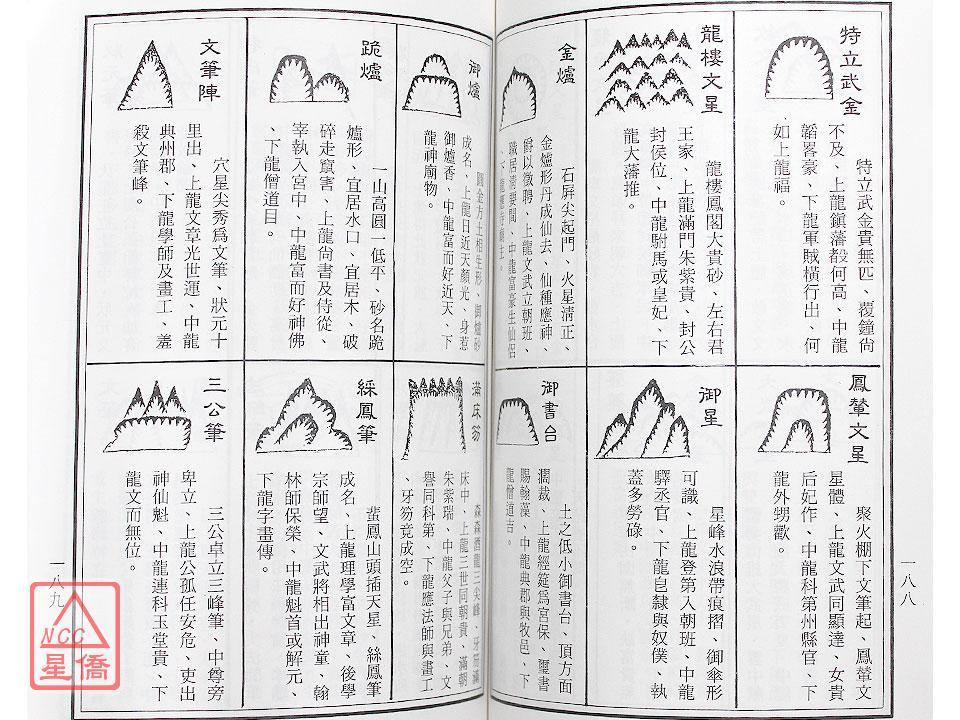 特立武金
特立武金貴無匹、覆鐘尚
不及、上龍鎮藩殽何高、中龍
韜畧豪、下龍軍賊橫行出、何
如上龍福。
龍樓文星
龍樓鳳閣大貴砂、左右君
王家、上龍滿門朱紫貴、封公
封侯位、中龍駙馬或皇妃、下
龍大藩推。
金爐
石屏尖起門、火星清正、
金爐形丹成仙去、仙種應神
爵以徵聘、上龍文武立朝班、
職居清要間、中龍富豪生仙侶
鳳輦文星
聚火棚下文筆起、鳳輦文
星體、上龍文武同顯達、女貴
后妃作、中龍科第州縣官、下
龍外甥歡。
御星
星峰水浪帶痕摺、御傘形
可識、上龍登第入朝班、中龍
驛丞官、下龍皂隸與奴僕、執
蓋多勞碌。
御書台
土之低小御書台、頂方面
濶裁、上龍經筵爲宮保、璽書
賜翰藻、中龍典郡與牧邑、下
龍僧道吉。
一八八
御爐
圓金方土相生形、御爐砂
成名、上龍日近天顏光、身惹
御爐香、中龍富而好近天、下
龍神廟物。
跪爐
一山高圓一低平、砂名跪
爐形、宜居水口、宜居木、破
碎走竄害、上龍尚書及侍從、
宰執入宮中、中龍富而好神佛
、下龍僧道目。
文筆陣
穴星尖秀爲文筆、狀元十
里出、上龍文章光世運、中龍
典州郡、下龍學師及畫工、羞
殺文筆峰。
滿床笏
森森酒龍三尖峰、牙笏滿
床中、上龍三世同朝貴、滿朝
朱紫瑞、中龍父子與兄弟、文
譽同科第、下龍應法師與畫工
、牙笏竟成空。
綵鳳筆
蜚鳳山頭插天星、絲鳳筆
成名、上龍理學富文章、後學
宗師望、文武將相出神童、翰
林師保榮、中龍魁首或解元、
下龍字畫傳。
三公筆
三公卓立三峰筆、中尊旁
卑立、上龍公孤任安危、吏出
神仙魁、中龍連科玉堂貴、下
龍文而無位。
一八九
NCC
星僑